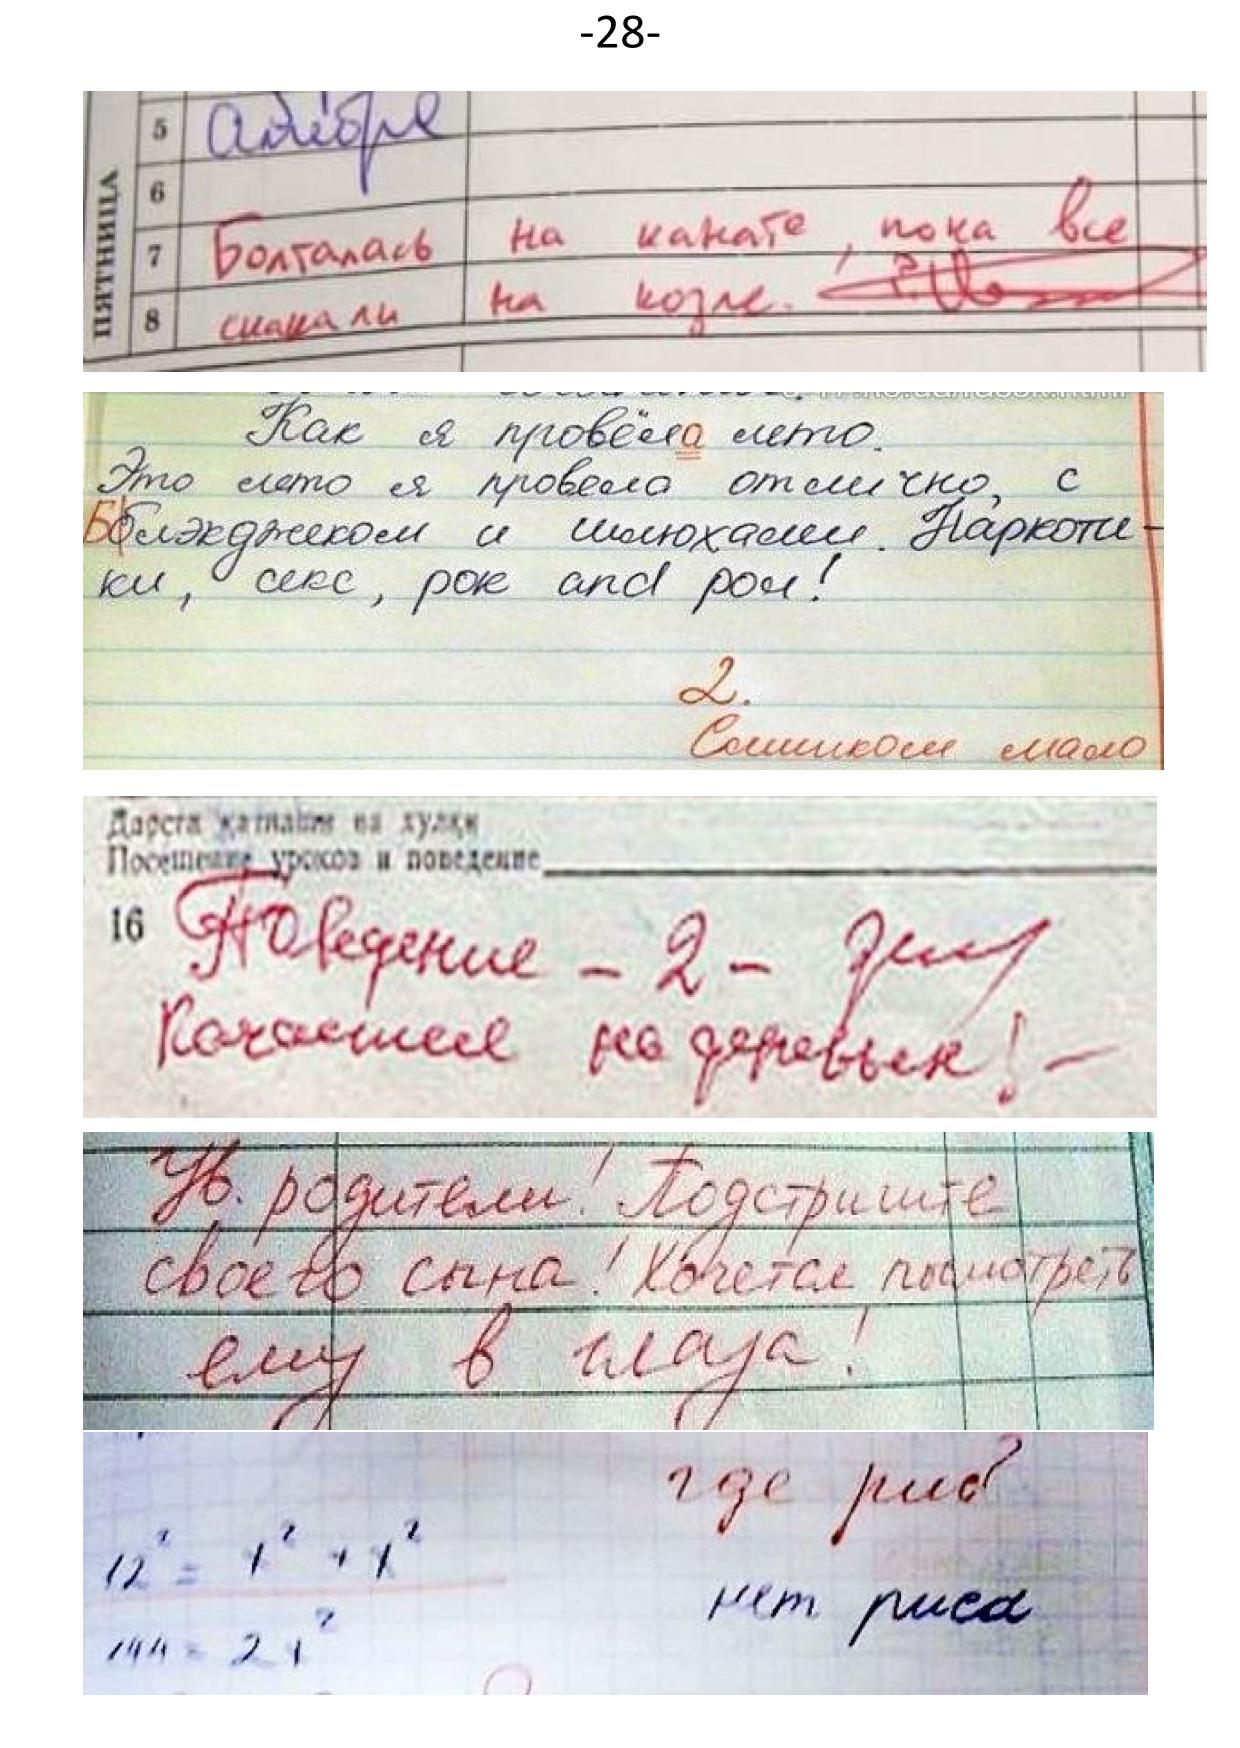 -28-
ПЯТНИЦА
5 Алгебра
6
7 Болталась на канате, пока все
8 скакали на козле.
Как я провёела лето.
Это лето я провела отлично, с
Бблэкджеком и шлюхами. Наркоти-
ки, секс, рок and рол!
2.
Слишком мало
Дарсга катнашв ва хулки
Посещение уроков и поведение
16 Поведение – 2 –
Качается на деревьях! –
Ув. родители! Подстригите
своего сына! Хочется посмотреть
ему в глаза!
где рис?
12² = x² + x²
нет риса
144 = 2x²